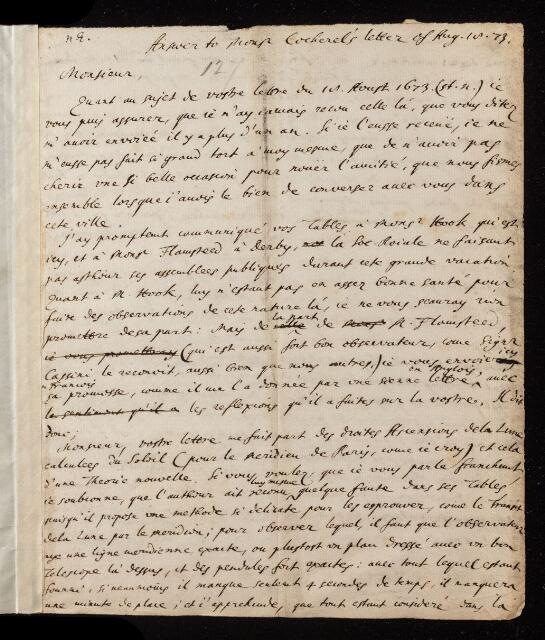 Answer to Monsr Cocherel's letter of Aug. 18. 73.
12
Monsieur,
Quant au sujet de vostre lettre du 18 Aoust 1673. (st. n.) ie
vous puis assurer, que ie n'ay iamais receu celle là, que vous dites
m'avoir envoiée il y a plus d'un an. Si ie l'eusse receuë, ie ne
m'eusse pas fait si grand tort à moy mesme, que de n'avoir pas
cherie une si belle occasion pour noüer l'amitié, que nous fismes
ensemble lorsque i'avois le bien de converser avec vous dans
cete ville.
J'ay promptemt communiqué vos Tables, à Monsr Hook qui est
icy, et à Monsr Flamsteed à Derby, la Soc. Roiale ne faisant
pas asthour ses assemblees publiques durant cete grande vacation
Quant à M. Hook, luy n'estant pas en assez bonne santé pour
faire des observations de cete nature là, ie ne vous sçauray rien
promettre de sa part: Mais de la part de M. Flamsteed,
(qui est aussi fort bon observateur, come Sigr
Cassini le reconoit, aussi bien que nous autres,) ie vous envoie icy
sa promesse, comme il me l'a donnee par une sienne lettre, en Anglois, avec
les reflexions qu'il a faites sur la vostre. Il dit
donc;
Monsieur, vostre lettre me fait part des droites Ascensions de la Lune
calculees du Soleil (pour le meridien de Paris, come ie croy) et cela
d'une Theorie nouvelle. Si vous voulez, que ie vous parle franchemt,
ie soubçonne, que l'authour ait luy mesme reconu quelque faute dans ses Tables,
puisqu'il propose une methode si delicate pour les esprouver, come le transit
de la Lune par le meridien; pour observer lequel, il faut que l'observateur
aye une ligne meridienne exacte, ou plustost un plan dressé avec un bon
Telescope là dessus, et des pendules fort exactes: avec tout lequel estant
fourni, si neanmoins il manque seulemt 4 secondes de temps, il manquera
une minute de place; et i'apprehende, que tout estant consideré dans la